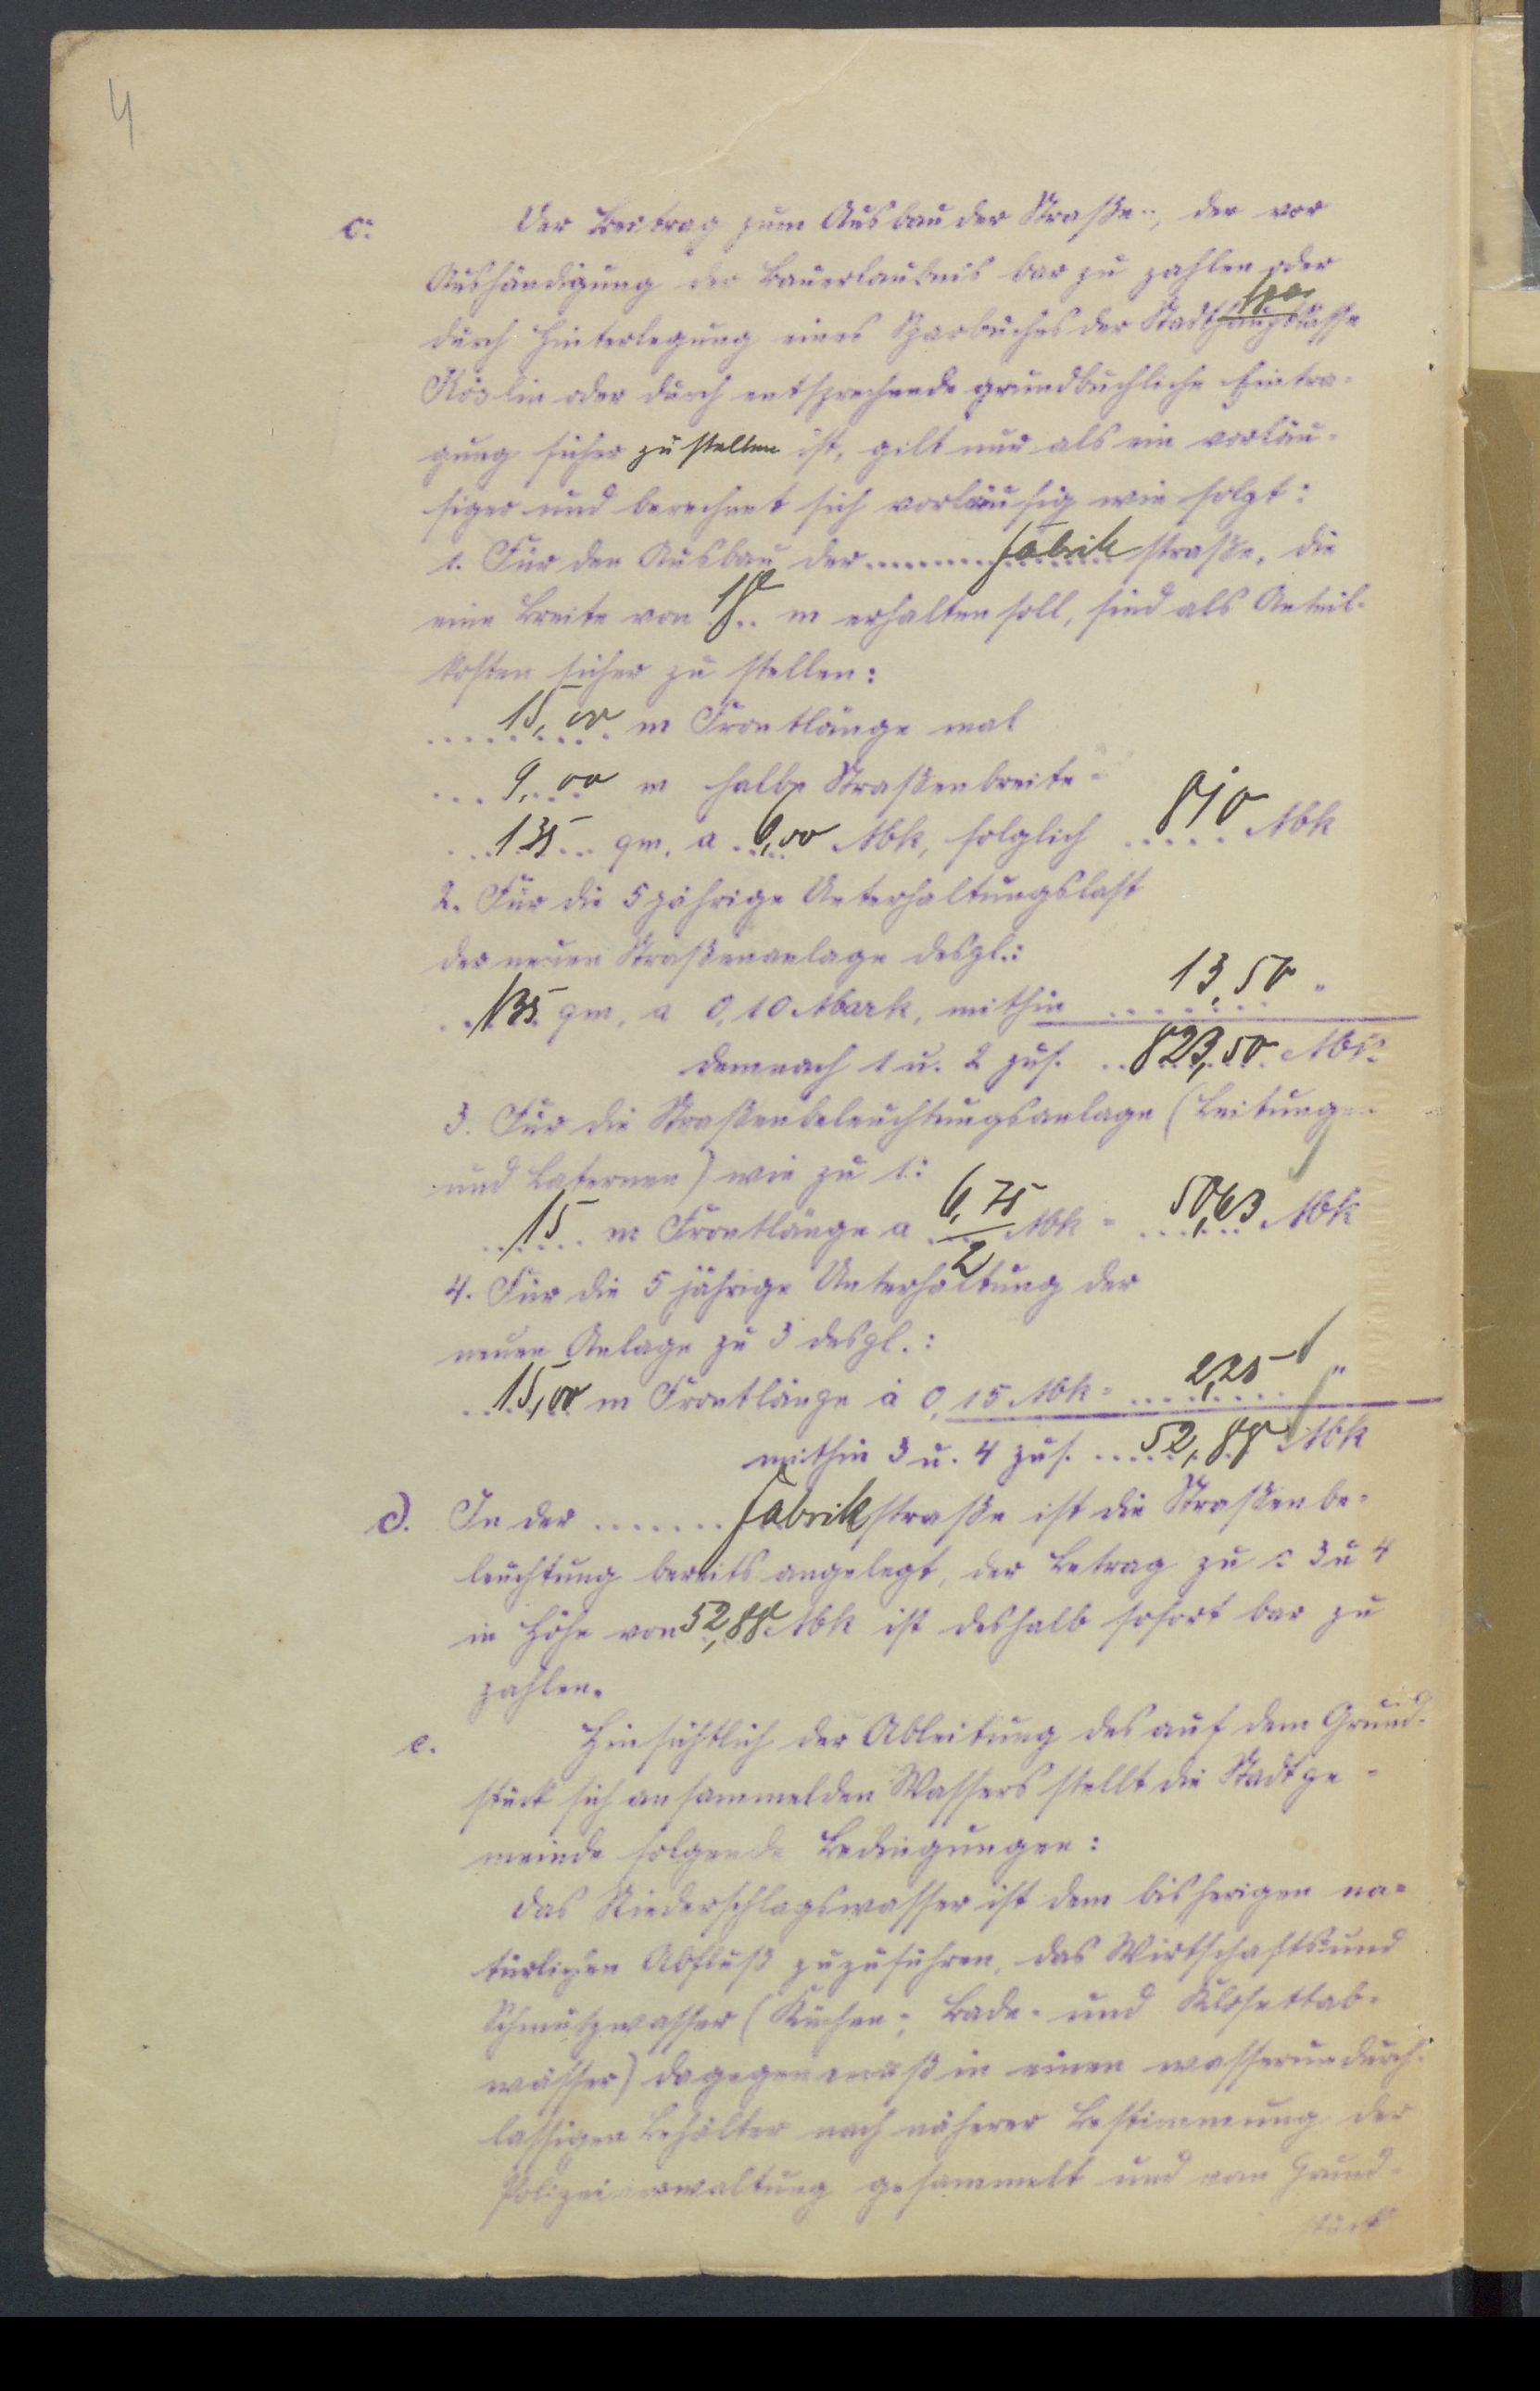 4
c. Der Beitrag zum Ausbau der Straße.., der vor
Aushändigung der Bauerlaubnis bar zu zahlen oder
spar
durch Hinterlegung eines Sparbuches der Stadthauptkasse
Köslin oder durch entsprechende grundbuchliche Eintra-
gung sicher zu stellen ist, gilt nur als ein vorläu-
figer und berechnet sich vorläufig wie folgt:
1. Für den Ausbau der ........ Fabrikstraße, die
eine Breite von 18.. m erhalten soll, sind als Anteil-
kosten sicher zu stellen:
15,00 m Frontlänge mal
9,00 m halbe Straßenbreite =
135 qm, a 6,00 Mk, folglich 810 Mk
2. Für die 5 jährige Unterhaltungslast
der neuen Straßenanlage desgl.:
135 qm, a 0,10 Mark, mithin 13,50 "
demnach 1 u. 2 zus. 823,50 Mk
3. Für die Straßenbeleuchtungsanlage (Leitungen
und Laternen) wie zu 1:
15 m Frontlänge a 6,75/2 Mk = 50,63 Mk
4. Für die 5 jährige Unterhaltung der
neuen Anlage zu 3 desgl.:
15,00 m Frontlänge à 0,15 Mk = 2,25 "
mithin 3 u. 4 zus. 52,88 Mk
d. In der ....... Fabrikstraße ist die Straßenbe-
leuchtung bereits angelegt, der Betrag zu c 3 u 4
in Höhe von 52,88 Mk ist deshalb sofort bar zu
zahlen.
e. Hinsichtlich der Ableitung des auf dem Grund-
stück sich ansammelden Wassers stellt die Stadtge-
meinde folgende Bedingungen:
Das Niederschlagswasser ist dem bisherigen na-
türlichen Abfluß zuzuführen, das Wirtschafts- und
Schmutzwasser (Küchen-, Bade- und Klosettab-
wässer) dagegen muß in einen wasserundurch-
lässigen Behälter nach näherer Bestimmung der
Polizeiverwaltung gesammelt und vom Grund-
stück